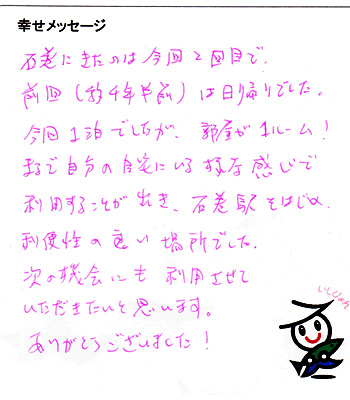 幸せメッセージ
石巻にきたのは今回2回目で、
前回(約4年半前)は日帰りでした。
今回1泊でしたが、部屋が1ルーム!
まるで自分の自宅にいる様な感じで
利用することが出き、石巻駅をはじめ、
利便性の良い場所でした。
次の機会にも利用させて
いただきたいと思います。
ありがとうございました!
いしぴょん